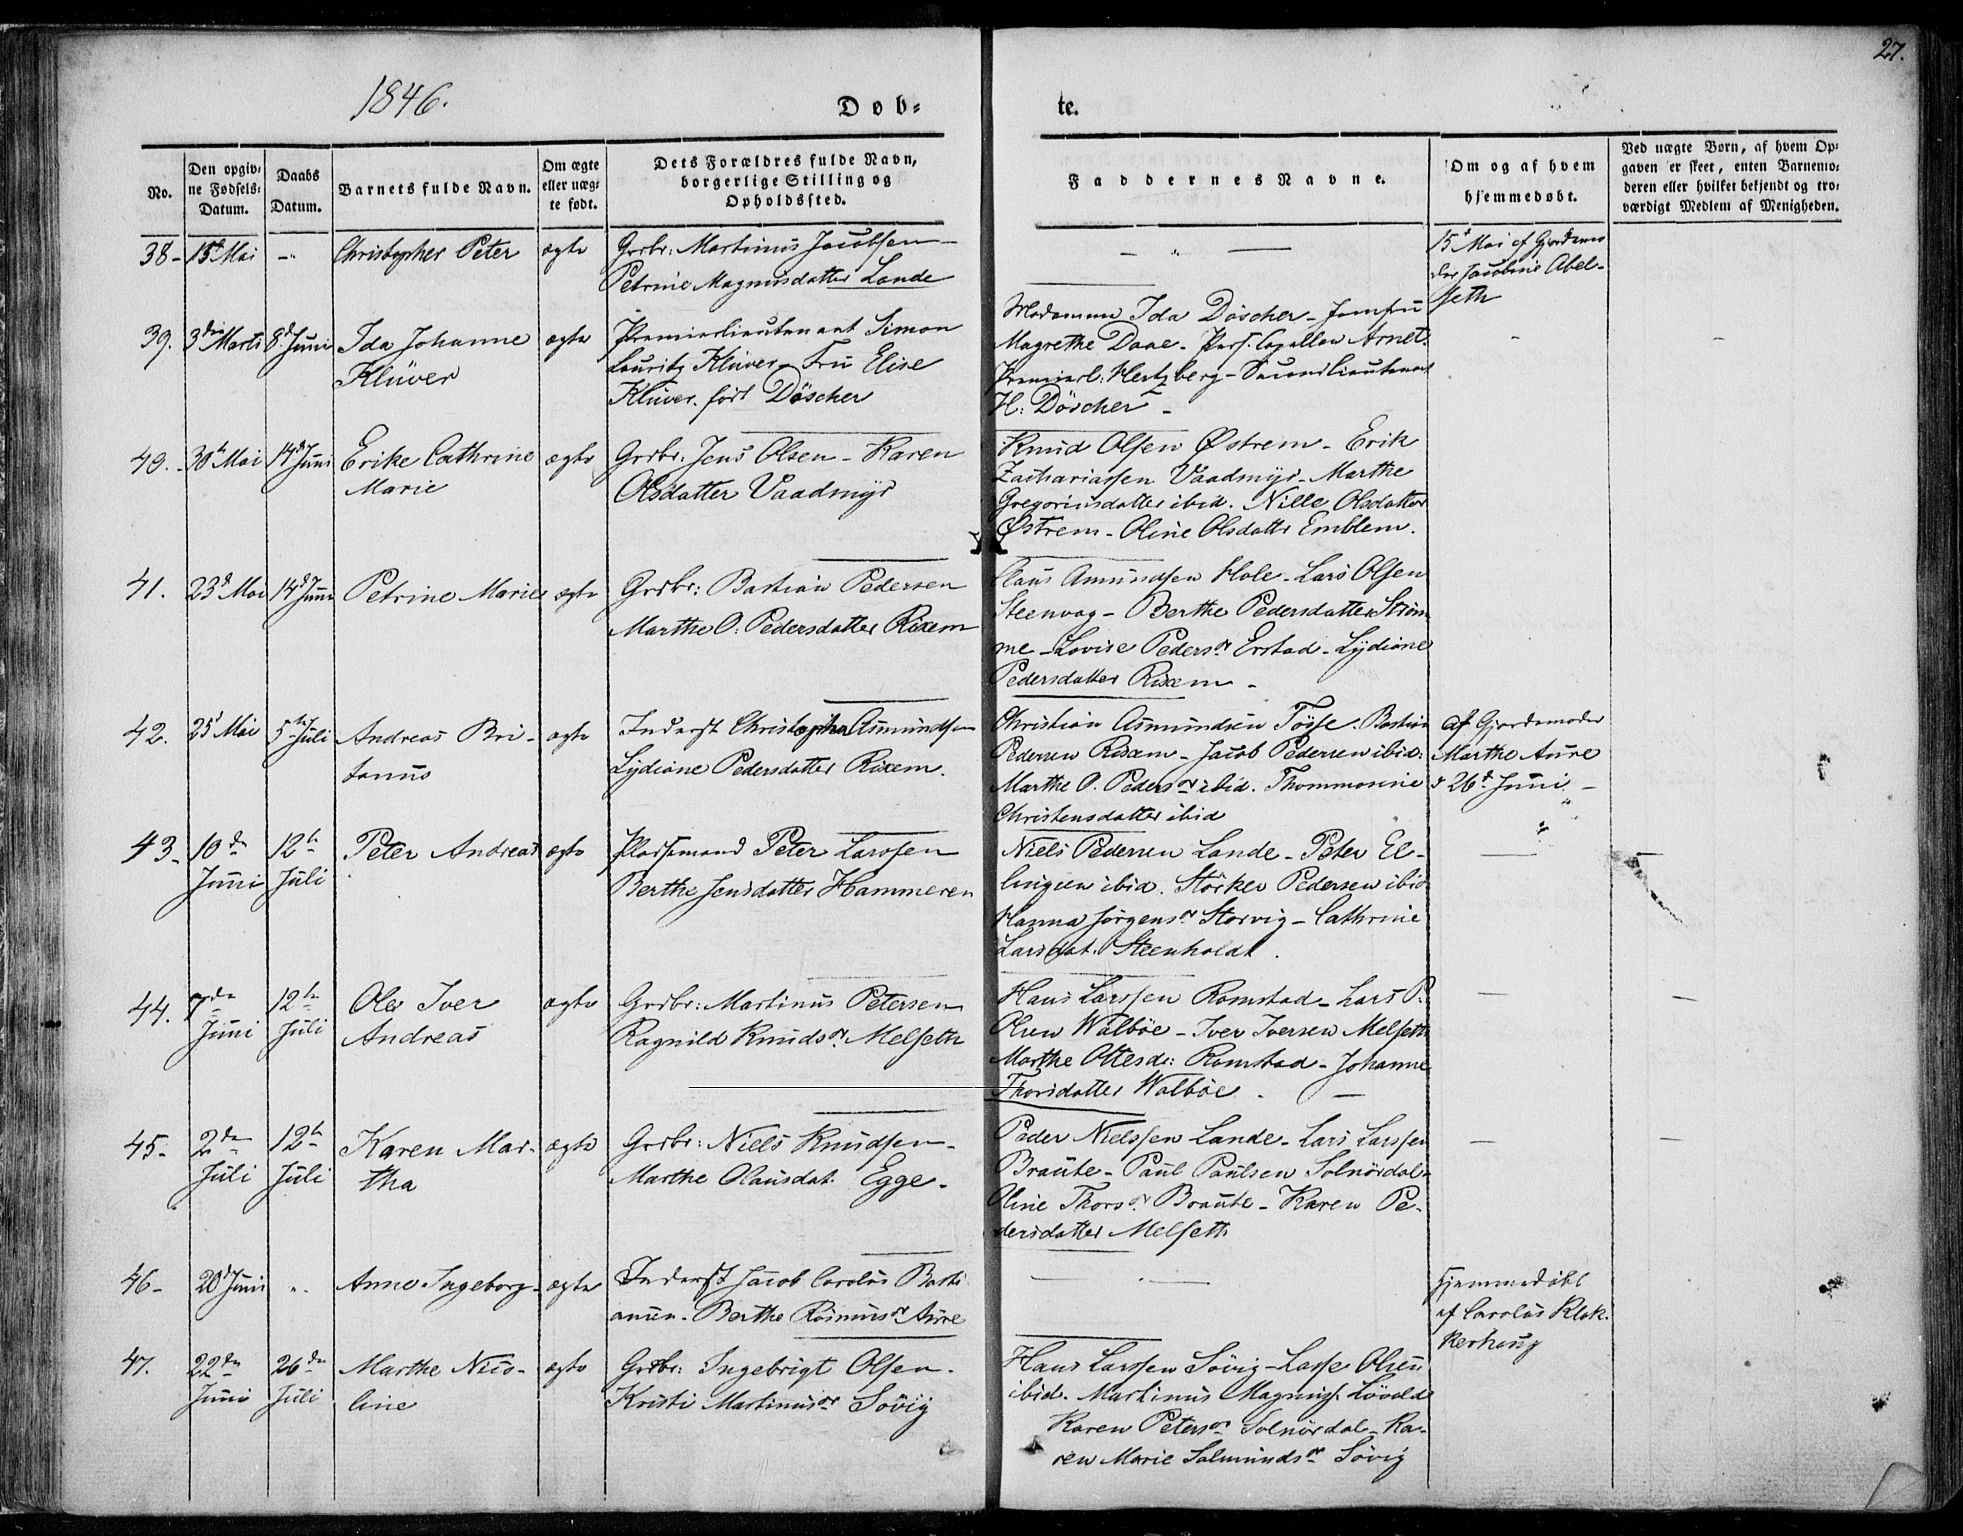 27.
1846.
Døb-
te.
No.
Den opgiv-
ne Fødsels-
Datum.
Daabs
Datum.
Barnets fulde Navn.
Om ægte
eller uæg-
te født.
Dets Forældres fulde Navn,
borgerlige Stilling og
Opholdssted.
Faddernes Navne.
Om og af hvem
hjemmedøbt.
Ved uægte Børn, af hvem Op-
gaven er skeet, enten Barnemo-
deren eller hvilket bekjendt og tro-
værdigt Medlem af Menigheden.
38- 15 Mai -"- Christopher Peter ægte Grbr: Martinus Jacobsen-
Petrine Magnusdatter Lande
15 Mai af Gjordemo
der Jacobine Abel-
seth
39. 3die Marts 8d Juni Ida Johanne ægte Premierlieutenant Simon
Klüver
Lauritz Klüver - Fru Elise
Klüver. født Döscher
Madamme Ida Döscher - Jomfru
Magrethe Daae - Pers. Capellan Arnet.
Premierl: Hertzberg - Secondlieutenant
H: Döscher -
40. 30t Mai 14d Juni Erike Cathrine ægte Grbr: Jens Olsen - Karen
Marie
Olsdatter Vaadmyr
Knud Olsen Østrem - Erik
Zachariassen Vaadmyr - Marthe
Gregoriusdatter ibid. Nille Olsdatter
Østrem - Oline Olsdattr Emblem.
41. 23d Mai 14d Juni Petrine Marie ægte Grbr: Bastian Pedersen
Marthe O: Pedersdatter Rixem
Claus Amundsen Hole - Lars Olsen
Steenvaag - Berthe Pedersdatter Strøm
me - Lovise Pedersdr Erstad - Lydiane
Pedersdatter Rixem -
42. 25 Mai 5te Juli Andreas Bri- ægte Inderst Christopher Asmundsen
tanus
Lydiane Pedersdatter Rixem.
Christian Asmundsen Tøsse. Bastian
Pedersen Rixem - Jacob Pedersen ibid:
Marthe O. Pedersdr ibid. Thommasine
Christensdatter ibid
af Gjordemoder
Marthe Aure
d 26d Juni -
43- 10de 12te Peter Andreas ægte Pladsmand Peter Larssen
Juni Juli
Berthe Jensdatter Hammeren
Niels Pedersen Lande - Peter El-
lingsen ibid. Størker Pedersen ibid
Hanna Jørgensdr Storvig - Cathrine
Larsdat. Steenholdt.
44. 7de 12te Ole Iver ægte Grbr: Martinus Petersen
Juni Juli Andreas
Ragnild Knudsdr. Melseth
Hans Larssen Romstad - Lars P.
Olsen Walbøe - Iver Iversen Melseth
Marthe Ottesdr: Romstad - Johanne
Thorsdatter Walbøe. -
45- 2den 12te Karen Mar- ægte Grbr: Niels Knudsen -
Juli Juli tha
Marthe Olausdat. Egge -
Peder Nielssen Lande - Lars Larssen
Braute - Paul Paulsen Solnørdal -
Oline Thorsdr. Braute - Karen Pe-
dersdatter Melseth
46- 20d Juni "- Anne Ingeborg - ægte Inderst Jacob Carolus Basti
ansen - Berthe Rasmusdr Aure
Hjemmedøbt
af Carolus Klok-
kerhoug
47. 22de 26de Marthe Nico- ægte Grbr: Ingebrigt Olsen -
Juni Juli line
Kristi Martinusdr Søvig
Hans Larssen Søvig - Lasse Olsen
ibid. Martinus Magnuss. Løvold
Karen Petersdr Solnørdal - Ka-
ren Marie Salmundsdr Søvig